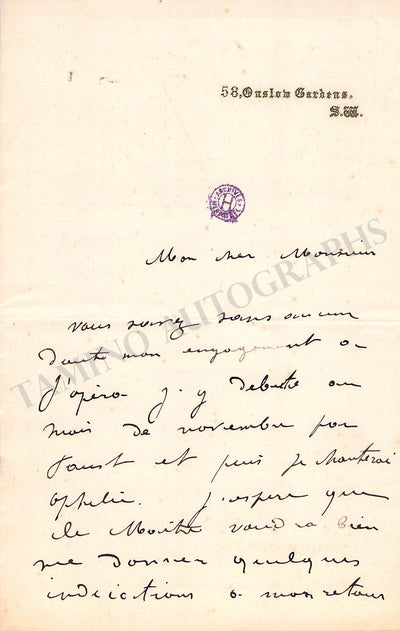 58, Onslow Gardens.
S.W.
ARCHIVES
H
Mon cher Monsieur
TAMINO AUTOGRAPHS
vous savez sans aucun
doute mon engagement a
l'opéra j'y debute au
mois de novembre par
Faust et puis je chanterai
Ophelie. J'espere que
le Maitre voudra bien
me donner quelques
indications a mon retour